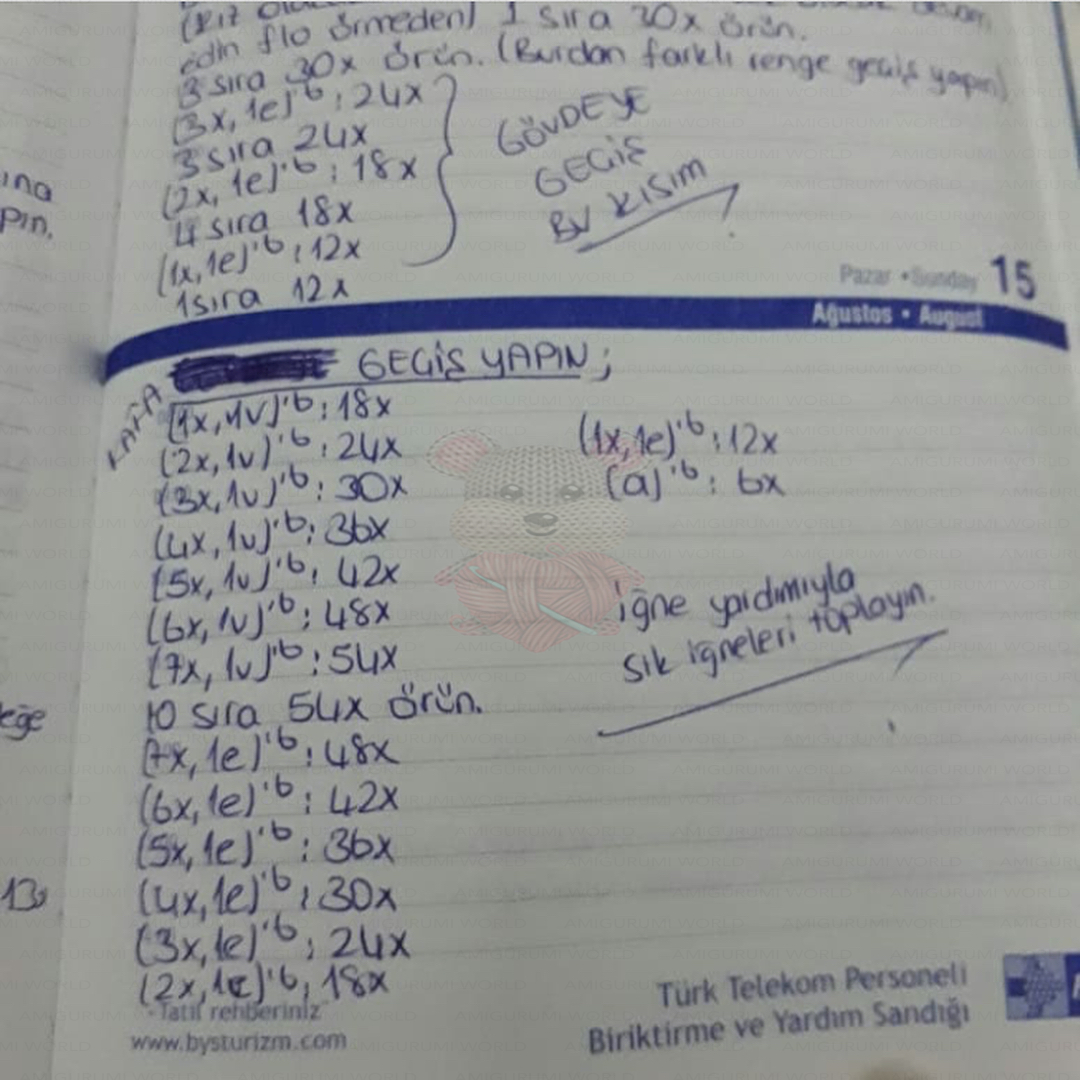 edin flo örmeden) 1 sıra 30x örün.
3 sıra 30x örün. (Burdan farklı renge geçiş yapın)
(3x, 1e)'6 : 24x
3 sıra 24x
(2x, 1e)'6 : 18x
4 sıra 18x
(1x, 1e)'6 : 12x
1 sıra 12x
GÖVDEYE
GEÇİŞ
BU KISIM
ına
pın.
Pazar • Sunday 15
Ağustos • August
KAFA GEÇİŞ YAPIN;
(1x, 1v)'6 : 18x
(2x, 1v)'6 : 24x
(3x, 1v)'6 : 30x
(4x, 1v)'6 : 36x
(5x, 1v)'6 : 42x
(6x, 1v)'6 : 48x
(7x, 1v)'6 : 54x
10 sıra 54x örün.
(7x, 1e)'6 : 48x
(6x, 1e)'6 : 42x
(5x, 1e)'6 : 36x
(4x, 1e)'6 : 30x
(3x, 1e)'6 : 24x
(2x, 1e)'6 : 18x
(1x, 1e)'6 : 12x
(a)'6 : 6x
iğne yardımıyla
sık iğneleri toplayın.
eğe
13
Tatil rehberiniz
www.bysturizm.com
Türk Telekom Personeli
Biriktirme ve Yardım Sandığı
AMIGURUMI WORLD